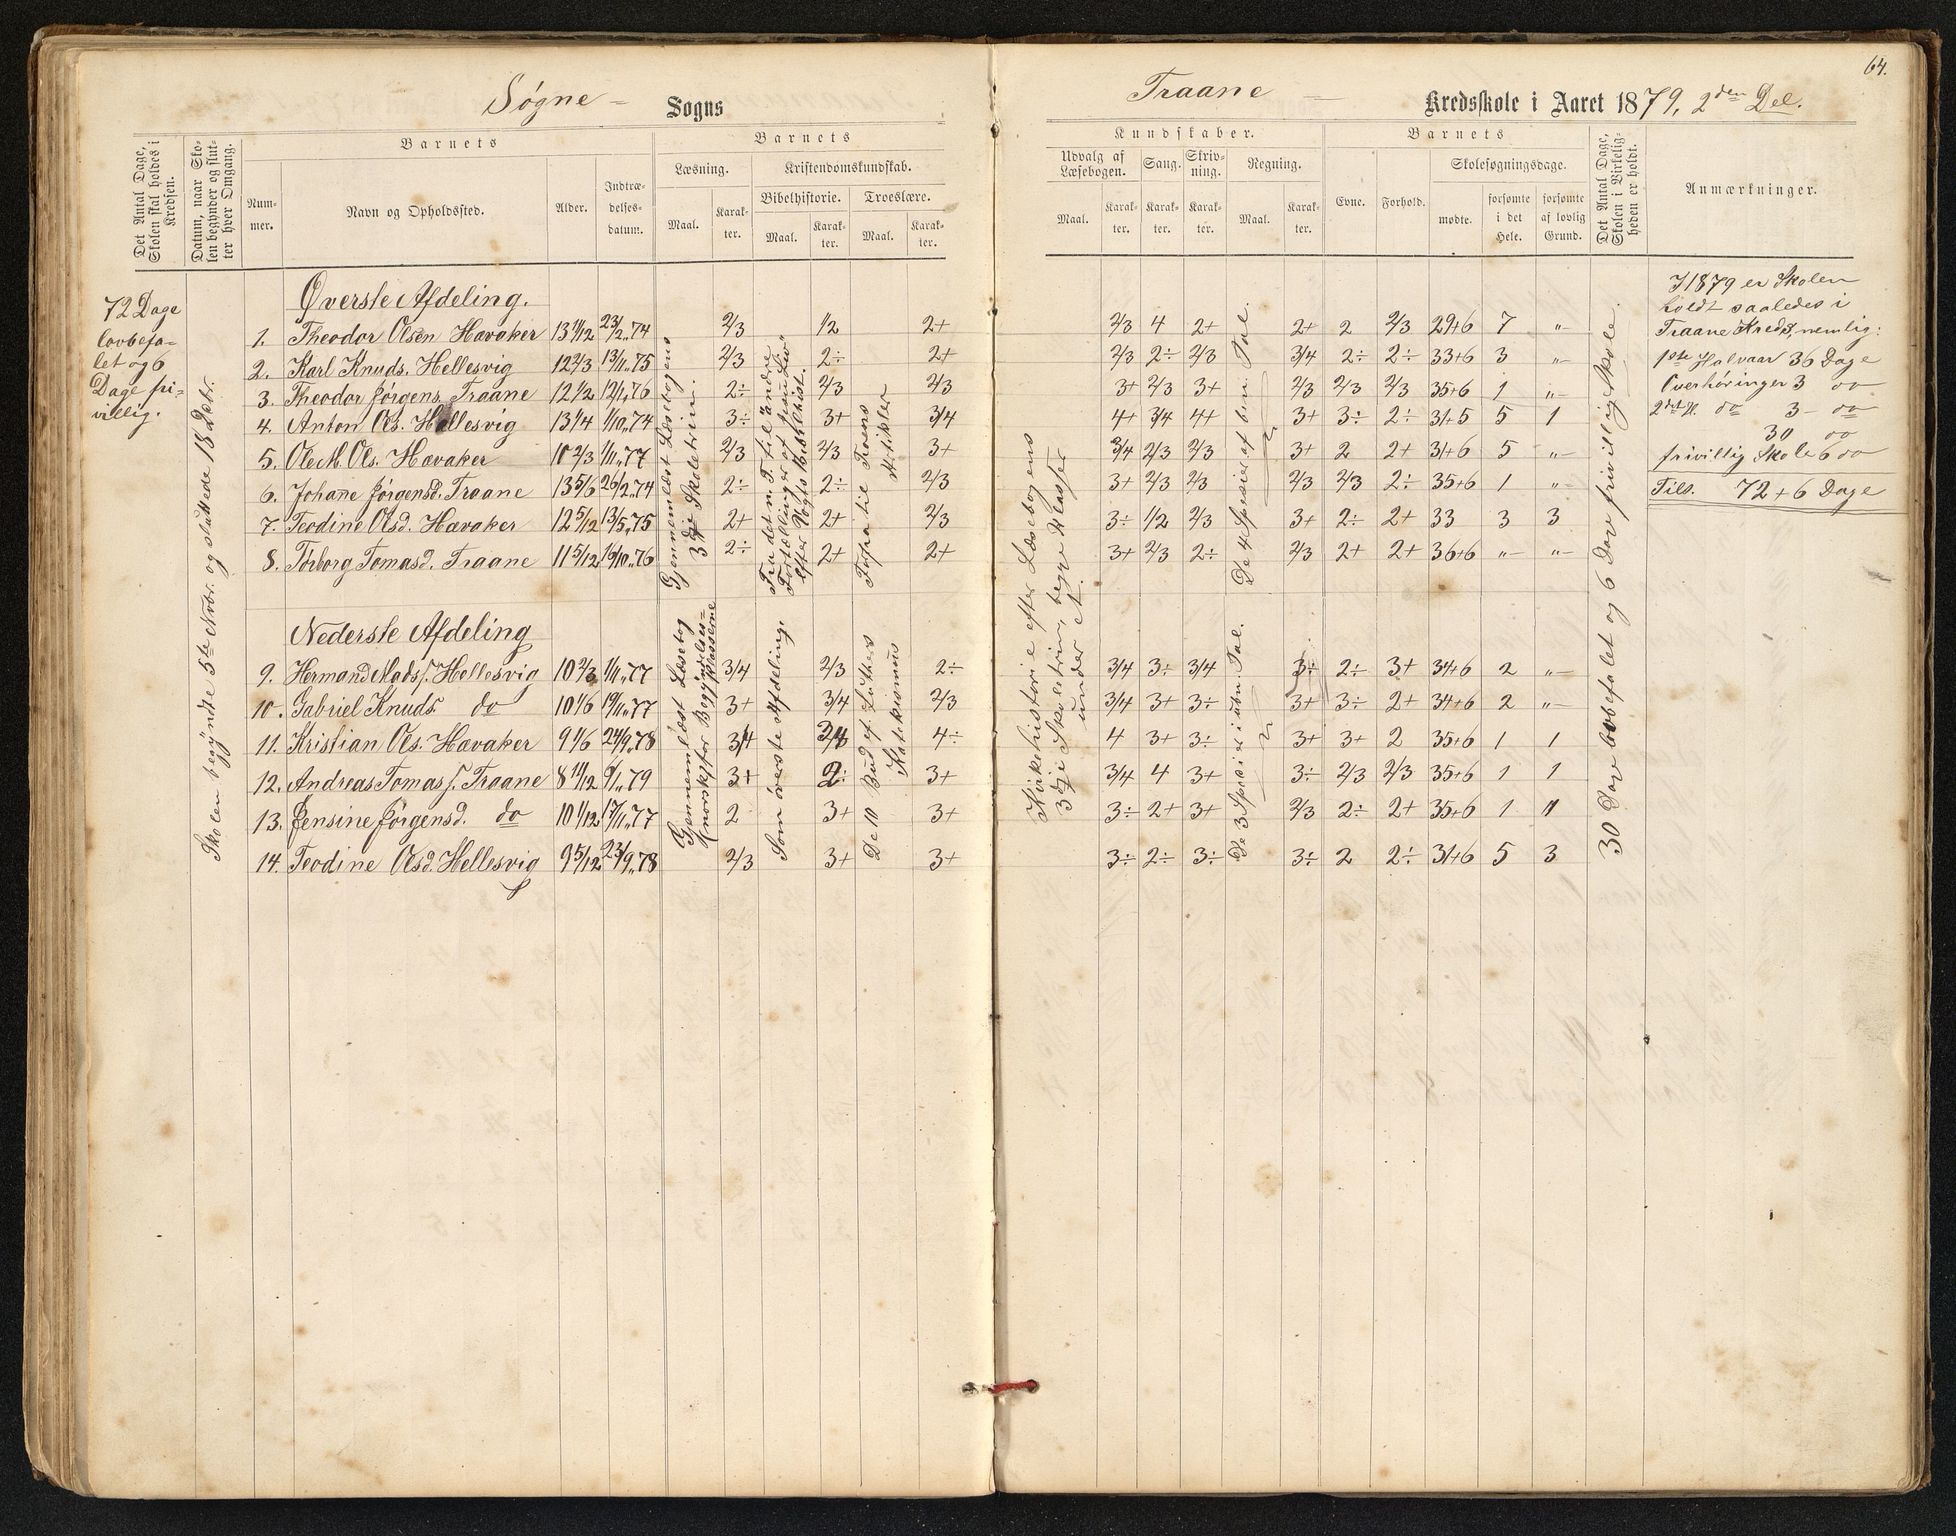 64.
Søgne – Sogns
Traane – Kredsskole i Aaret 1879, 2den Del.
Det Antal Dage, Skolen skal holdes i Kredsen.
Datum, naar Skolen begynder og slutter hver Omgang.
Barnets
Nummer.
Navn og Opholdssted.
Alder.
Indtrædelsesdatum.
Barnets
Læsning.
Maal.
Karakter.
Kristendomskundskab.
Bibelhistorie.
Maal.
Karakter.
Troeslære.
Maal.
Karakter.
Kundskaber.
Udvalg af Læsebogen.
Maal.
Karakter.
Sang.
Karakter.
Skrivning.
Karakter.
Regning.
Maal.
Karakter.
Barnets
Evne.
Forhold.
Skolesøgningsdage.
mødte.
forsømte i det Hele.
forsømte af lovlig Grund.
Det Antal Dage, Skolen i Virkeligheden er holdt.
Anmærkninger.
72 Dage
lovbefa-
let og 6
Dage fri-
villig.
Skolen begyndte 5te Nvbr. og sluttede 18 Dcbr.
Øverste Afdeling.
1. Theodor Olsen Havaker 13 11/12 23/2 74 2/3 1/2 2+ 2/3 4 2+ 2+ 2 2/3 29+6 7 "-
2. Karl Knuds. Hellesvig 12 2/3 13/11 75 2/3 2÷ 2+ 2/3 2÷ 2/3 3/4 2÷ 2÷ 33+6 3 "-
3. Theodor Jørgens. Traane 12 1/2 12/1 76 2÷ 2/3 2/3 3+ 2/3 3+ 2/3 2/3 2/3 35+6 1 "-
4. Anton Ols. Hellesvig 13 1/4 1/10 74 3÷ 3+ 3/4 4+ 3/4 4+ 3+ 3÷ 2÷ 31+5 5 1
5. Ole M. Ols. Havaker 10 2/3 1/11 77 2/3 2/3 3+ 3/4 2/3 2/3 3+ 2 2+ 31+6 5 "-
6. Johane Jørgensd. Traane 13 5/6 26/2 74 2÷ 2÷ 2/3 3+ 2/3 2/3 2/3 2/3 2÷ 35+6 1 "-
7. Teodine Olsd. Havaker 12 5/12 13/5 75 2+ 2+ 2/3 3÷ 1/2 2/3 3+ 2÷ 2+ 33 3 3
8. Torborg Tomasd. Traane 11 5/12 16/10 76 2÷ 2+ 2+ 3+ 2/3 2÷ 2/3 2+ 2+ 36+6 "- "-
Gjennemlæst Læsebogens
3dje Skoletrin.
Fra det n. T. til "andre
Fortællinger af Jesu Liv"
efter Vogts Bibelhist.
Forfra til Troens
Artikler
Kirkehistorie efter Læsebogens
3dje Skoletrin, begge Klasser
under et.
De 4 Species af bn. Tal.
Nederste Afdeling
9. Hermand Mads s. Hellesvig 10 2/3 1/11 77 3/4 2/3 2÷ 3/4 3÷ 3/4 3÷ 2÷ 3+ 34+6 2 "-
10. Gabriel Knuds. do 10 1/6 19/11 77 3+ 3/4 2/3 3/4 3+ 3÷ 3+ 3÷ 2+ 34+6 2 "-
11. Kristian Ols. Havaker 9 1/6 24/9 78 3/4 3/4 4÷ 4 3+ 3÷ 3+ 3+ 2 35+6 1 1
12. Andreas Tomas s. Traane 8 11/12 6/1 79 3+ 2÷ 3+ 3/4 4 3+ 3÷ 2/3 2/3 35+6 1 1
13. Jensine Jørgensd. do 10 1/12 17/11 77 2 3+ 3+ 3÷ 2+ 3+ 2/3 2÷ 2+ 35+6 1 "
14. Teodine Olsd. Hellesvig 9 5/12 23/9 78 2/3 3+ 3+ 3÷ 2÷ 3÷ 3÷ 2 2÷ 31+6 5 3
Gjennemlæst Læsebog
norsk for Begyndelses=
klasserne
Som øverste Afdeling.
De 10 Bud ef. Luthers
Katekismus
De 3 Species i ubn. Tal.
30 Dage lovbefalet og 6 Dage frivillig Skole.
I 1879 er Skolen
holdt saaledes i
Traane Kreds, nemlig:
1ste Halvaar 36 Dage
Overhøringer 3 do
2det H. do 3 – do
30 do
frivillig Skole 6 do
Tils. 72 + 6 Dage